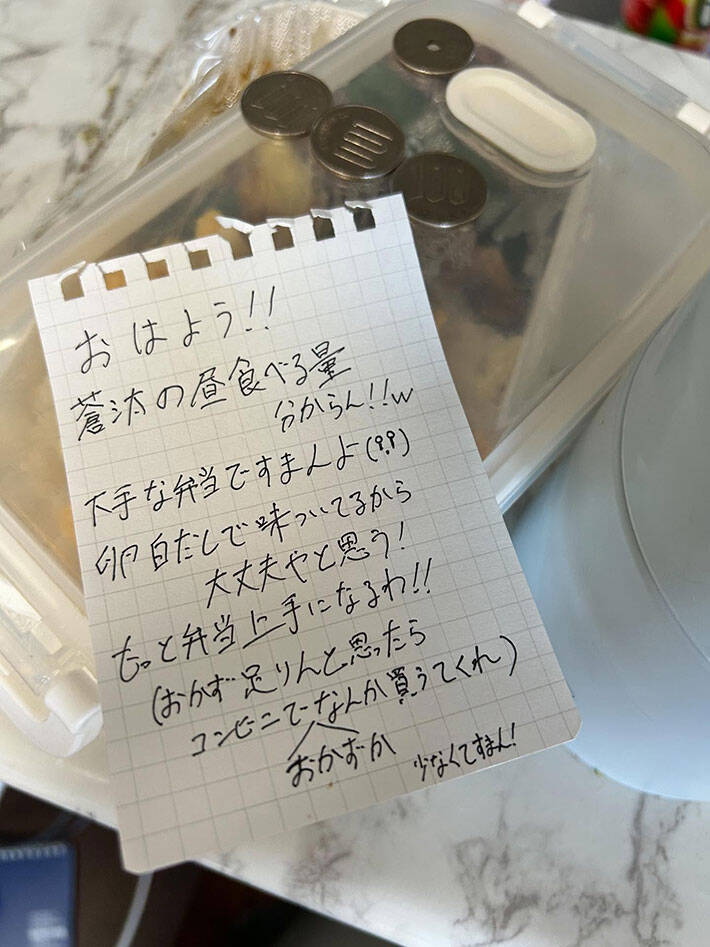 おはよう!!
蒼汰の昼食べる量
分からん!!w
下手な弁当ですまんよ
卵白だしで味ついてるから
大丈夫やと思う!
もっと弁当上手になるわ!!
(おかず足りんと思ったら
コンビニでなんか買うてくれ)
おかずか
少なくてすまん!
100
100
100